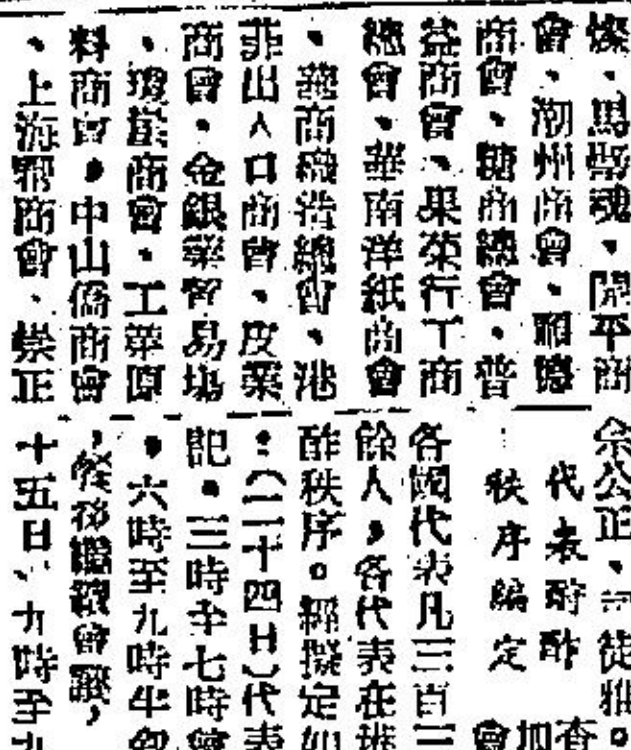 燦、馬醫魂、開平商
會、潮州商會、順德
商會、糖商總會、普
益商會、果菜行工商
總會、華南洋紙商會
、華商織造總會、港
菲出入口商會、皮業
商會、金銀業貿易場
、瓊崖商會、工業原
料商會、中山僑商會
、上海幫商會、崇正
佘公正、司徒雅。
代表酧酢
秩序編定
查
加
會
各國代表凡三百三
餘人，各代表在港
酢秩序。經擬定如
：（二十四日）代表
記。三時至七時
，六時至九時半
，然後繼續會議，
十五日、九時至九